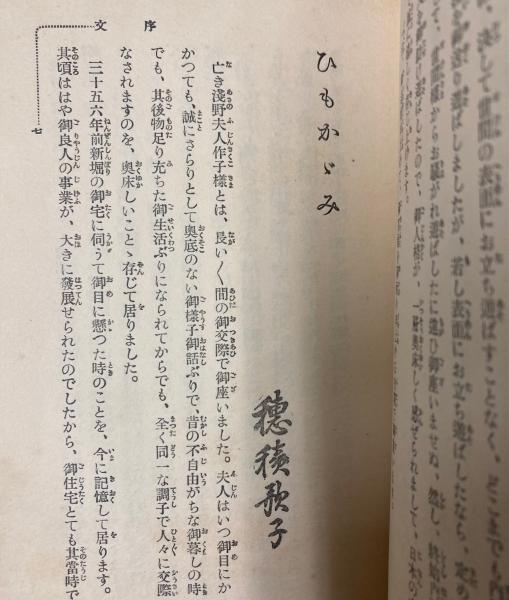 決して世間の表面にお立ち遊ばすことなく、どこまでも
遊ばしましたが、若し表面にお立ち遊ばしたなら、
ひもかゞみ
穗積歌子
亡き淺野夫人作子樣とは、長い〳〵間の御交際で御座いました。夫人はいつ御目にか
かつても、誠にさらりとして奥底のない御樣子御話ぶりで、昔の不自由がちな御暮しの時
でも、其後物足り充ちた御生活ぶりになられてからでも、全く同一な調子で人々に交際
なされますのを、奥床しいことゝ存じて居りました。
三十五六年前新堀の御宅に伺うて御目に懸つた時のことを、今に記憶して居ります。
其頃ははや御良人の事業が、大きに發展せられたのでしたから、御住宅とても其當時で
序文
七